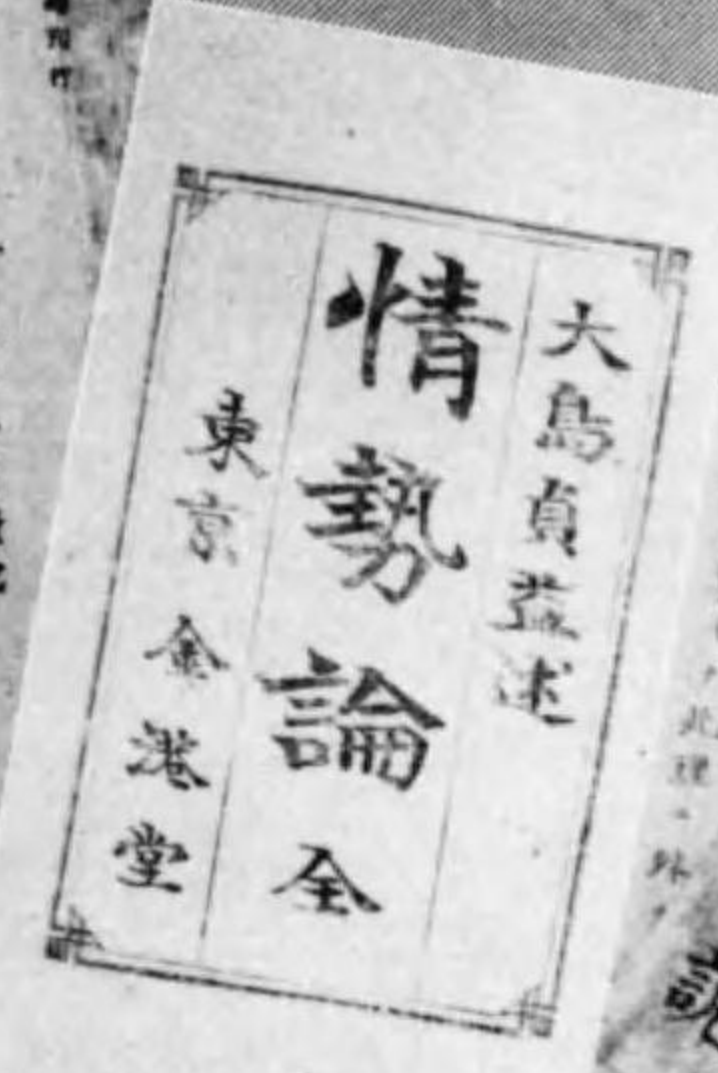 大島貞益述
情勢論全
東京金港堂